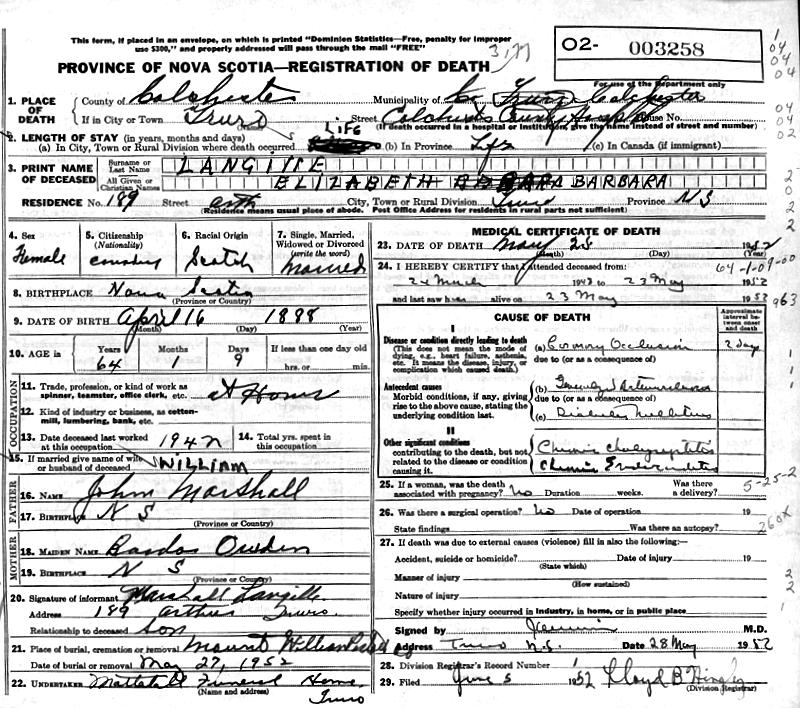 This form, if placed in an envelope, on which is printed "Dominion Statistics—Free, penalty for improper
use $300," and properly addressed will pass through the mail "FREE"
O2- 003258
PROVINCE OF NOVA SCOTIA—REGISTRATION OF DEATH
For use of the Department only
1. PLACE OF DEATH County of Colchester Municipality of Co. Truro Colchester
If in City or Town Truro Street Colchester County Hospital House No.
(If death occurred in a hospital or institution, give the name instead of street and number)
2. LENGTH OF STAY (in years, months and days)
(a) In City, Town or Rural Division where death occurred LIFE (b) In Province Life (c) In Canada (if immigrant)
3. PRINT NAME OF DECEASED Surname or Last Name LANGILLE
All Given or Christian Names ELIZABETH BARBARA
RESIDENCE No. 189 Street City, Town or Rural Division Truro Province NS
(Residence means usual place of abode. Post Office Address for residents in rural parts not sufficient)
4. Sex Female
5. Citizenship (Nationality) Canadian
6. Racial Origin Scotch
7. Single, Married, Widowed or Divorced (write the word) Married
8. BIRTHPLACE Nova Scotia
(Province or Country)
9. DATE OF BIRTH April 16 1888
(Month) (Day) (Year)
10. AGE in Years 64 Months 1 Days 9 If less than one day old hrs. or min.
OCCUPATION
11. Trade, profession, or kind of work as spinner, teamster, office clerk, etc. At Home
12. Kind of industry or business, as cotton-mill, lumbering, bank, etc.
13. Date deceased last worked at this occupation 1942
14. Total yrs. spent in this occupation
15. If married give name of wife or husband of deceased WILLIAM
FATHER
16. NAME John Marshall
17. BIRTHPLACE N S
(Province or Country)
MOTHER
18. MAIDEN NAME
19. BIRTHPLACE N S
(Province or Country)
20. Signature of informant Marshall Langille
Address 189 Arthur Truro.
Relationship to deceased Son
21. Place of burial, cremation or removal Mount William
Date of burial or removal May 27, 1952
22. UNDERTAKER Mattatall Funeral Home
(Name and address) Truro
MEDICAL CERTIFICATE OF DEATH
23. DATE OF DEATH May 25 1952
(Month) (Day) (Year)
24. I HEREBY CERTIFY that I attended deceased from:
24 March 1942 to 23 May 1952
and last saw her alive on 23 May 1952
CAUSE OF DEATH
Approximate interval between onset and death
I
Disease or condition directly leading to death
(This does not mean the mode of dying, e.g., heart failure, asthenia, etc. It means the disease, injury, or complication which caused death.)
(a) Coronary Occlusion 2 days
due to (or as a consequence of)
Antecedent causes
Morbid conditions, if any, giving rise to the above cause, stating the underlying condition last.
(b)
due to (or as a consequence of)
(c) Diabetes Mellitus
II
Other significant conditions
contributing to the death, but not related to the disease or condition causing it.
Chronic
Chronic
25. If a woman, was the death associated with pregnancy? No Duration weeks. Was there a delivery?
26. Was there a surgical operation? No Date of operation 19
State findings Was there an autopsy?
27. If death was due to external causes (violence) fill in also the following:—
Accident, suicide or homicide? Date of injury 19
(State which)
Manner of injury
(How sustained)
Nature of injury
Specify whether injury occurred in industry, in home, or in public place
Signed by M.D.
Address Truro N.S. Date 28 May 1952
28. Division Registrar's Record Number
29. Filed June 5 1952 Lloyd B
(Division Registrar)